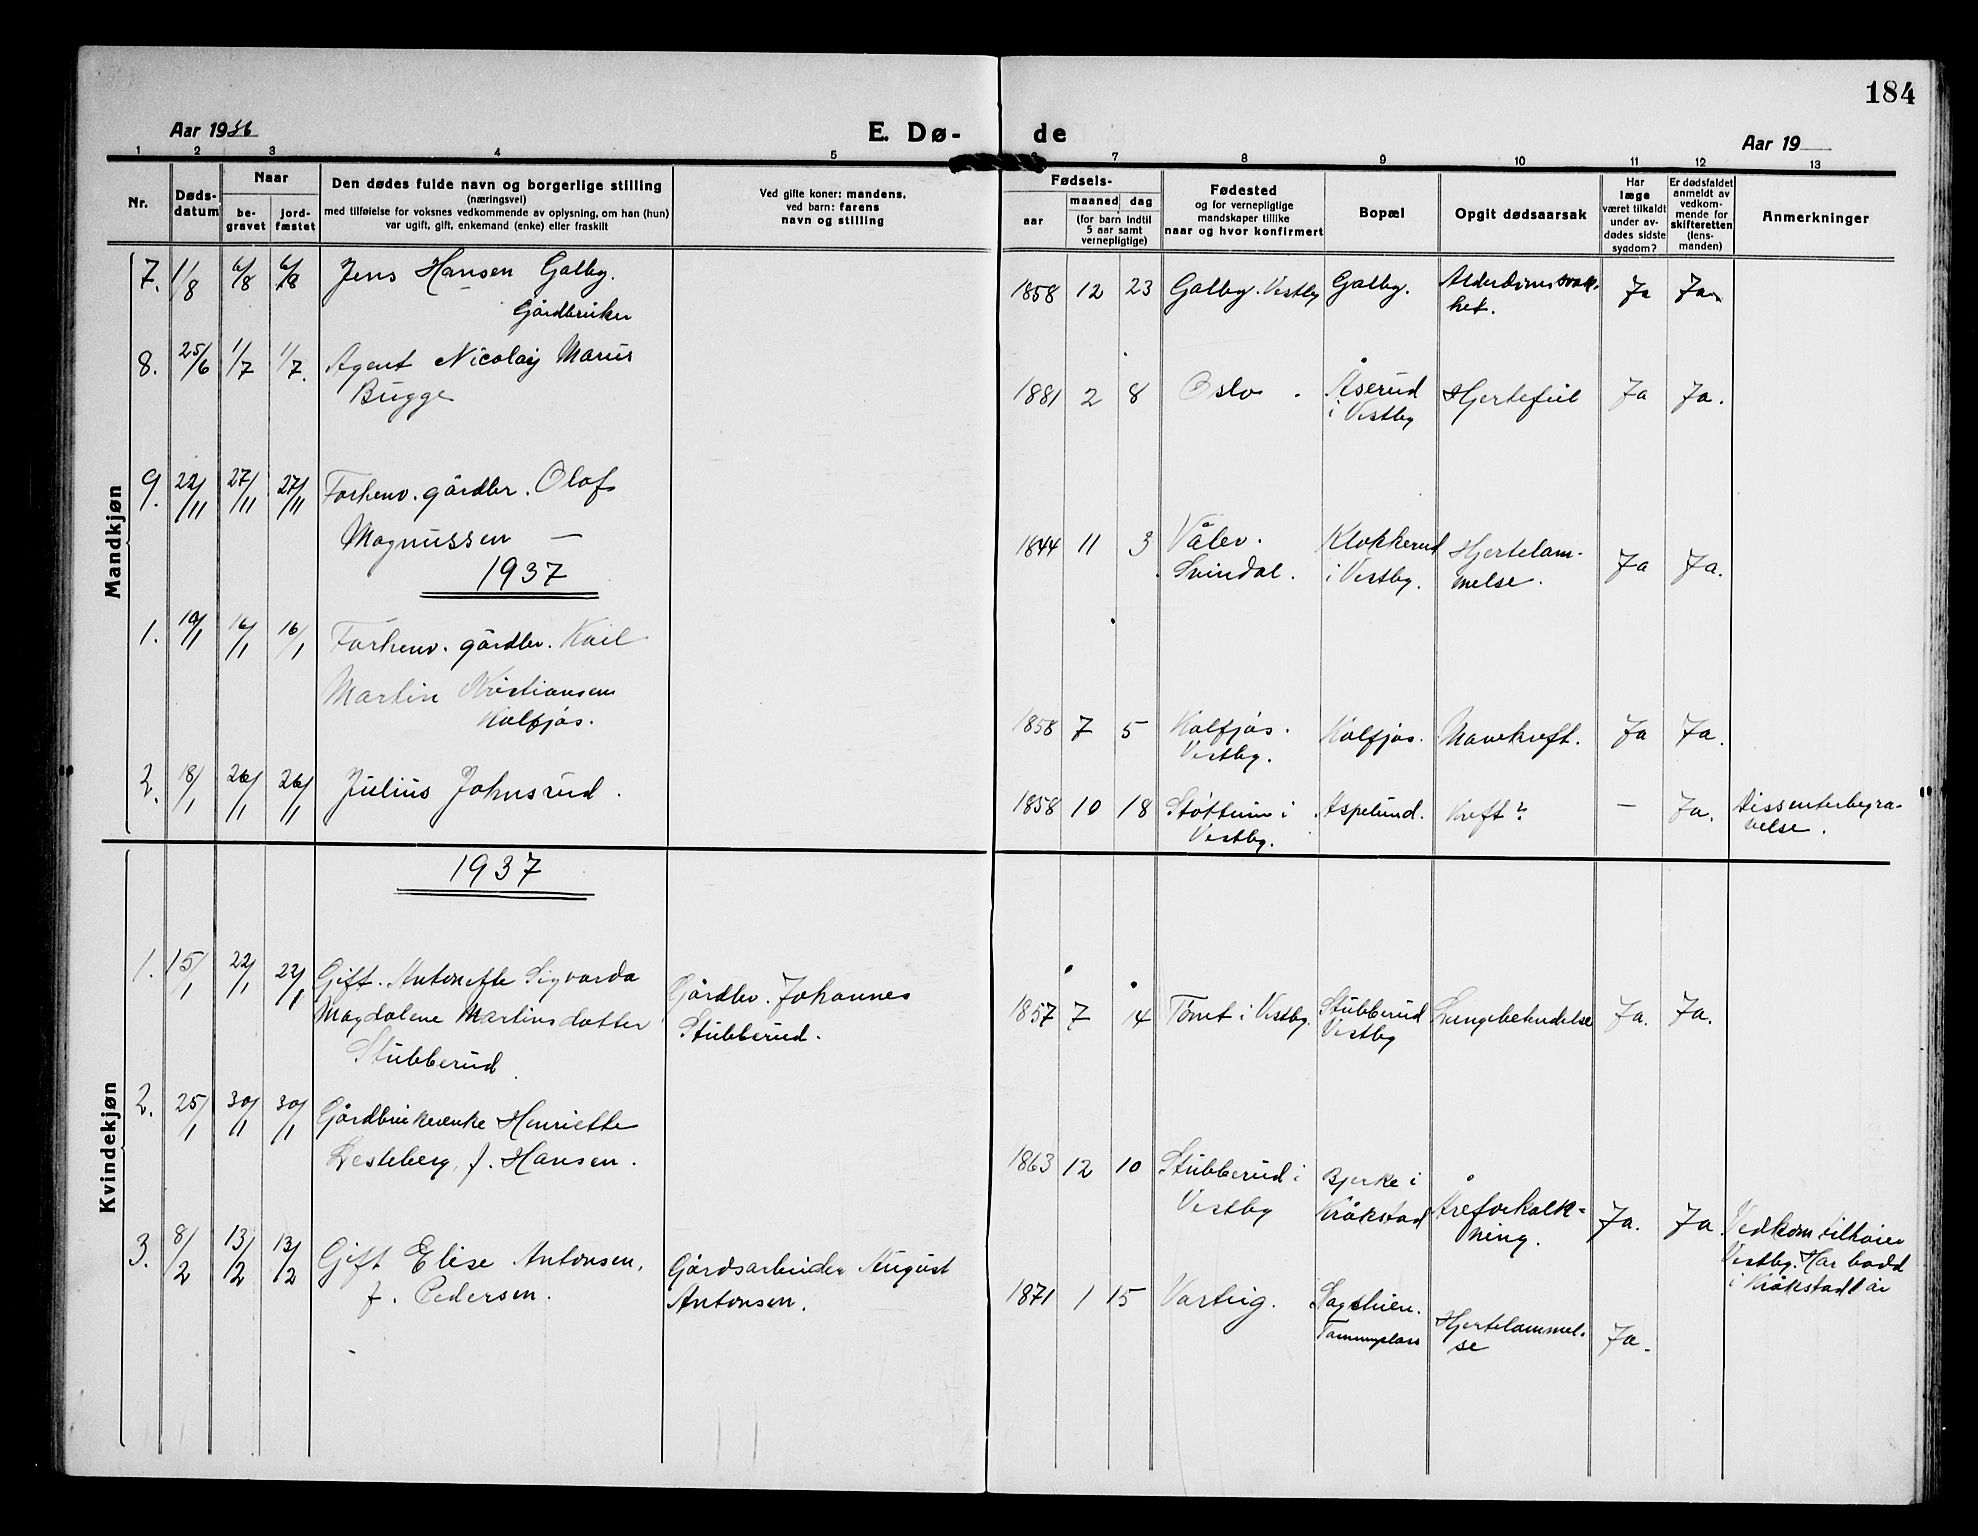 184
Aar 1936
E. Dø-
de
Aar 19
1 2 3 4 5 6 7 8 9 10 11 12 13
Nr.
Døds-
datum
Naar
be-
gravet
jord-
fæstet
Den dødes fulde navn og borgerlige stilling
(næringsvei)
med tilføielse for voksnes vedkommende av oplysning, om han (hun)
var ugift, gift, enkemand (enke) eller fraskilt
Ved gifte koner: mandens,
ved barn: farens
navn og stilling
Fødsels-
aar
maaned dag
(for barn indtil
5 aar samt
vernepligtige)
Fødested
og for vernepliglige
mandskaper tillike
naar og hvor konfirmert
Bopæl
Opgit dødsaarsak
Har
læge
været tilkaldt
under av-
dødes sidste
sygdom?
Er dødsfaldet
anmeldt av
vedkom-
mende for
skifteretten
(lens-
manden)
Anmerkninger
Mandkjøn
7. 1/8 6/8 6/8 Jens Hansen Galby.
Gårdbruker
1858 12 23 Galby. Vestby Galby. Alderdomssvak-
het. Ja Ja
8. 25/6 1/7 1/7. Agent Nicolay Marius
Bugge
1881 2 8 Oslo. Åserud
i Vestby Hjertefeil Ja Ja.
9. 22/11 27/11 27/11 Forhenv. gårdbr. Olof
Magnussen —
1844 11 3 Våler.
Svindal. Klokkerud
i Vestby. Hjertelam-
melse. Ja Ja.
1937
1. 10/1 16/1 16/1 Forhenv. gårdbr. Karl
Martin Kristiansen
Kolfjøs.
1858 7 5 Kolfjøs.
Vestby. Kolfjøs. Mavekreft. Ja Ja.
2. 18/1 26/1 26/1 Julius Johnsrud.
1858 10 18 Støttum i
Vestby. Aspelund. Kreft? — Ja. Dissenterbegra-
velse.
Kvindekjøn
1937
1. 15/1 22/1 22/1 Gift. Antonette Sigvarda
Magdalene Martinsdatter
Stubberud
Gårdbr. Johannes
Stubberud.
1857 7 14 Tomt i Vestby. Stubberud
Vestby Lungebetendelse Ja. Ja.
2. 25/1 30/1 30/1 Gårdbrukerenke Henriette
Lesteberg, f. Hansen.
1863 12 10 Stubberud i
Vestby Bjerke i
Kråkstad Åreforkalk-
ning. Ja. Ja Vedkom. tilhører
Vestby. Har bodd
i Kråkstad 1 år
3. 8/2 13/2 13/2 Gift Elise Antonsen,
f. Pedersen.
Gårdsarbeider August
Antonsen.
1871 1 15 Varteig. Hjertelammel-
se Ja.